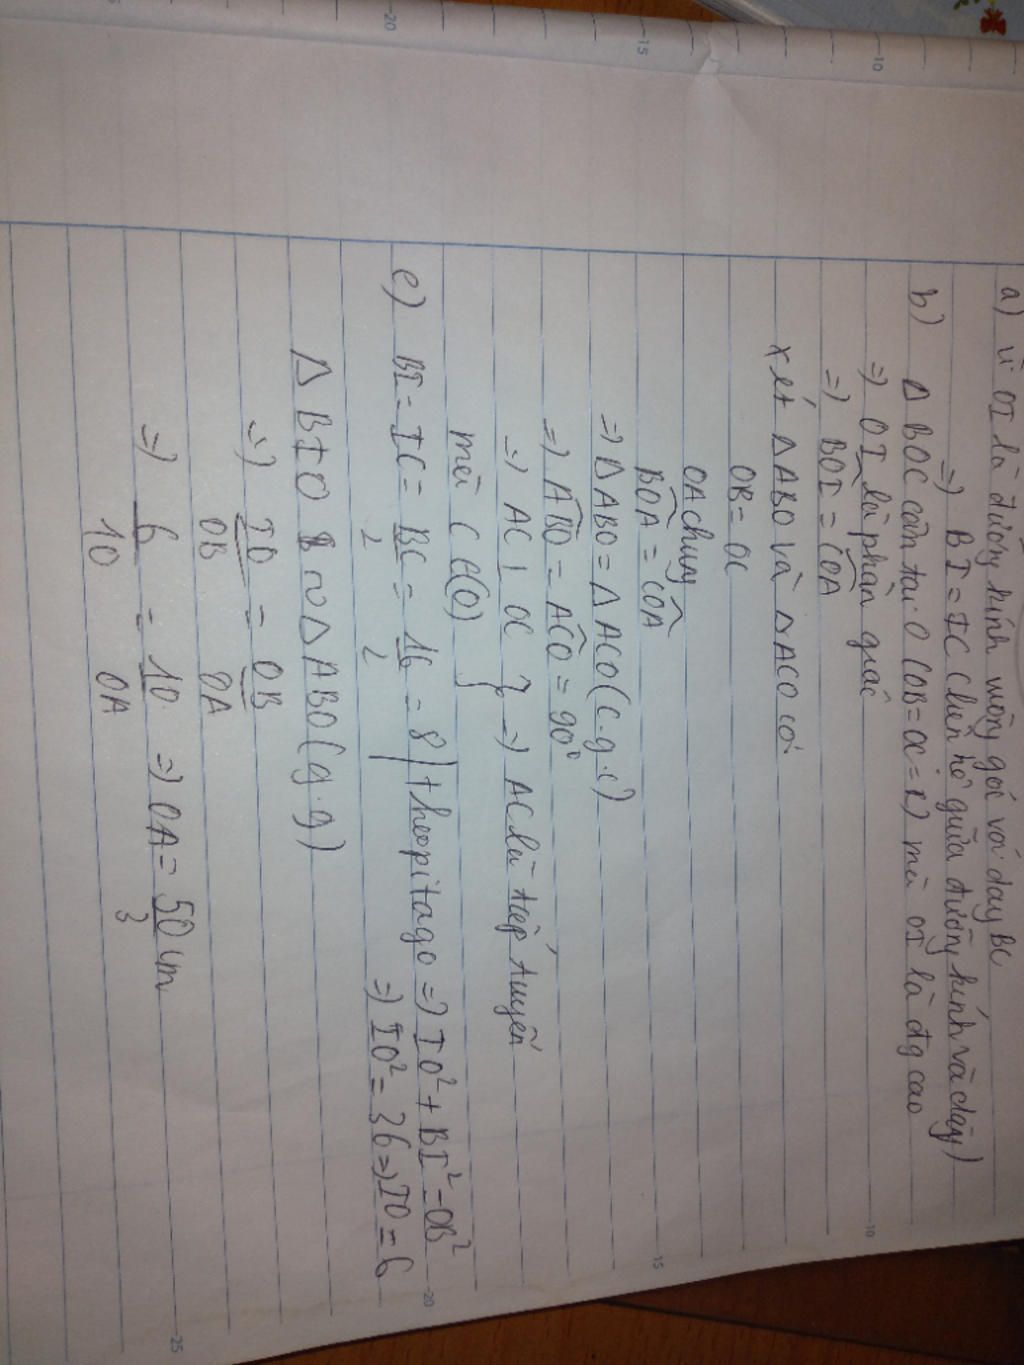 a) Vì OI là đường kính vuông góc với dây BC
=) BI = IC (liên hệ giữa đường kính và dây)
b) Δ BOC cân tại O (OB = OC = R) mà OI là đg cao
=) OI là phân giác
=) BOI = COA
Xét Δ ABO và Δ ACO có:
OB = OC
OA chung
BOA = COA
=) Δ ABO = Δ ACO (c.g.c)
=) ABO = ACO = 90°
=) AC ⊥ OC } =) AC là tiếp tuyến
mà C ∈ (O)
c) BI = IC = BC/2 = 16/2 = 8 | theo pitago =) IO² + BI² = OB²
=) IO² = 36 =) IO = 6
Δ BIO ∽ Δ ABO (g.g)
=) IO/OB = OB/OA
=) 6/10 = 10/OA =) OA = 50/3 cm
10
15
20
10
15
20
25